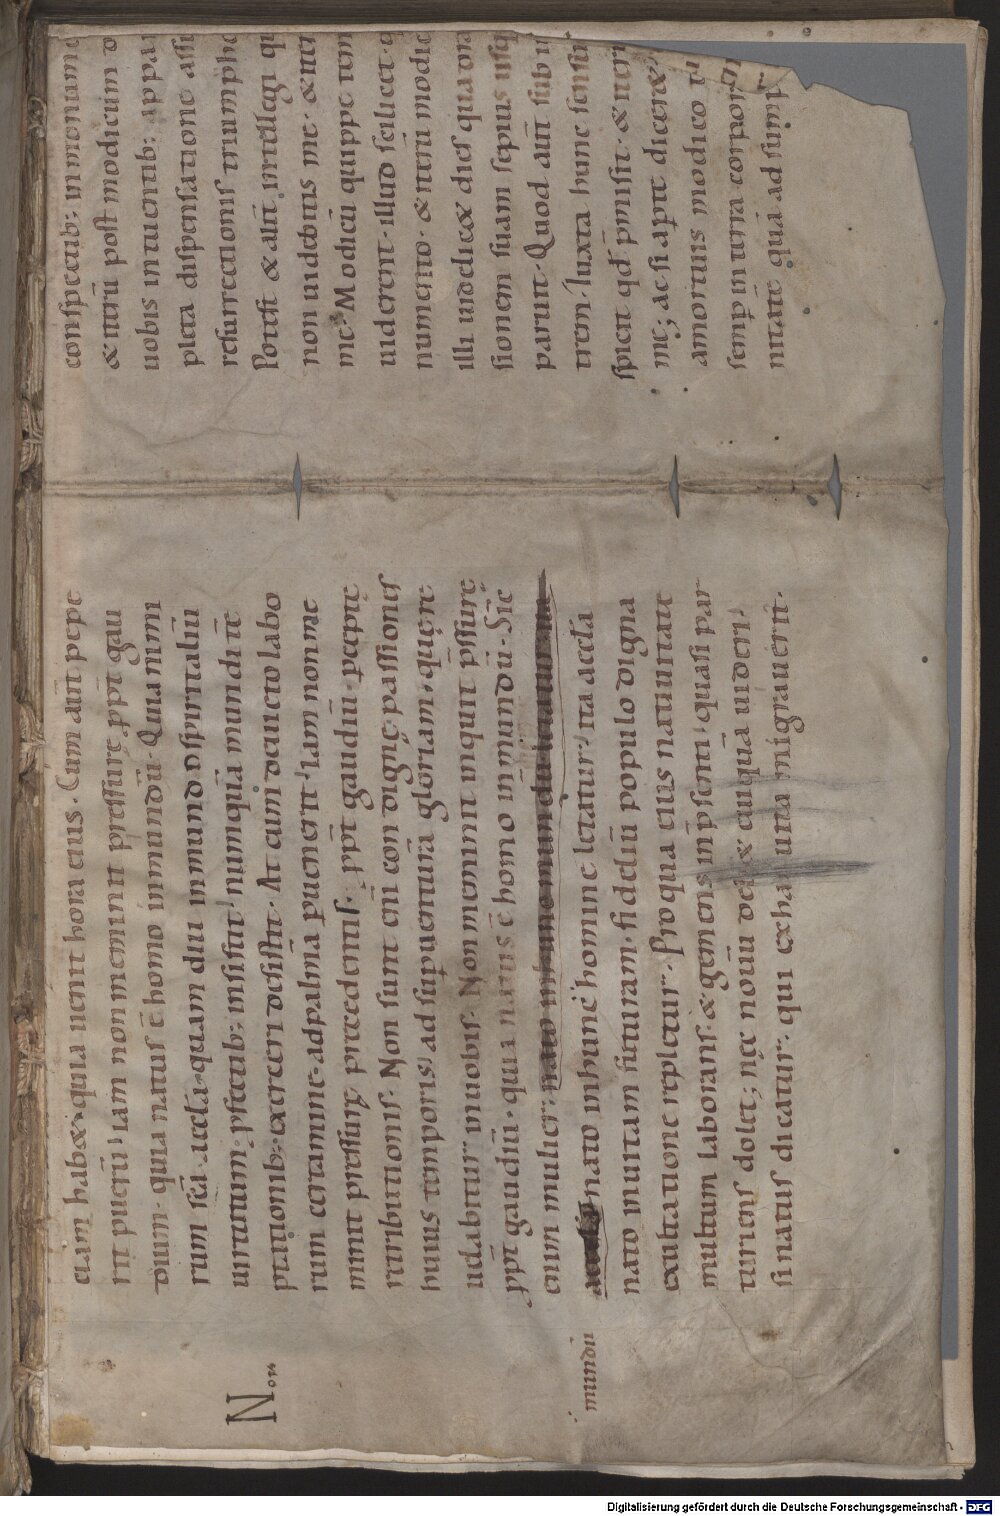 ciam hab&· quia uenit hora eius. Cum aut̄ pepe
rit puerū iam non meminit pressurę ꝓpt̄ gau
dium· quia natus ē homo in mundū· Quia nimi
rum sc̄a aeccl̄a quam diu in mundo spiritaliū
uirtutum ꝓfectib; insistit numquā mundi tē
ptationib; exerceri desistit· At cum deuicto labo
rum certamine· ad palmā puenerit iam non me
minit pressurę praecedentis· ꝓpt̄ gaudiū pceptę
retributionis· Non sunt eni condignę passiones
huius temporis ad supuenturā gloriam quę re
uelabitur in uobis· Non meminit inquit p̄ssurę
ꝓpt̄ gaudiū· quia natus ē homo in mundū· Sic
enim mulier·
nato in hunc homine letatur ita aeccl̄a
nato in uitam futuram· fideliū populo digna
exultatione repletur· Pro qua eius natiuitate
multum laborans & gemens in p̄senti quasi par
turiens dolet; nec nouū de & cuiquā uideri
si natus dicatur· qui ex hac uita migrauerit·
Non
mundū
conspectib; in monume
& iterū post modicum
uobis intuentib; appa
pleta dispensatione assu
resurrectionis triumpho
Potest & alit̄ intellegi qu
non uidebitis me· & iter
me· Modicū quippe tem
uiderent· illud scilicet
numento· & iterū modic
illi uidelic& dies qua
sionem suam sepius
parult· Quod aut̄ sub
trem· Iuxta hunc sensu
spicit qd̄ p̄misit· & iteru
me; ac si apte diceret
a mortuis modico
semp in terra corpor
nitate quā adsump
Digitalisierung gefördert durch die Deutsche Forschungsgemeinschaft - DFG